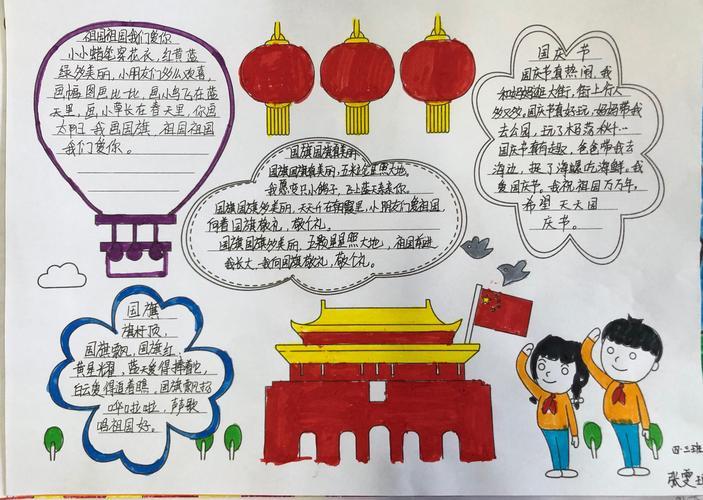 祖国祖国我们爱你
小小蜡笔穿花衣，红黄蓝
绿多美丽，小朋友们多么欢喜，
画幅图画比一比，画小鸟飞在蓝
天里，画小草长在春天里，你画
太阳我画国旗，祖国祖国
我们爱你。
国旗国旗真美丽
国旗国旗真美丽，五星金星照大地，
我愿变只小鸽子，飞上蓝天亲亲你。
国旗国旗多美丽，天天升在朝霞里，小朋友们爱祖国，
向着国旗敬礼，敬个礼。
国旗国旗多美丽，五颗星星照大地，祖国前进
我长大，我向国旗敬礼，敬个礼。
国庆节
国庆节真热闹，我
和妈妈逛大街，街上行人
多又多，国庆节真好玩，妈妈带我
去公园，玩了木马荡秋千…
国庆节真有趣，爸爸带我去
海边，捉了海螺吃海鲜。我
爱国庆节。我祝祖国万万年，
希望天天国
庆节。
国旗
旗杆顶，
国旗飘，国旗红，
黄星耀，蓝天爱得捧着它，
白云爱得追着瞧，国旗飘扬
哗啦啦，声声歌
唱祖国好。
四·三班
张雯